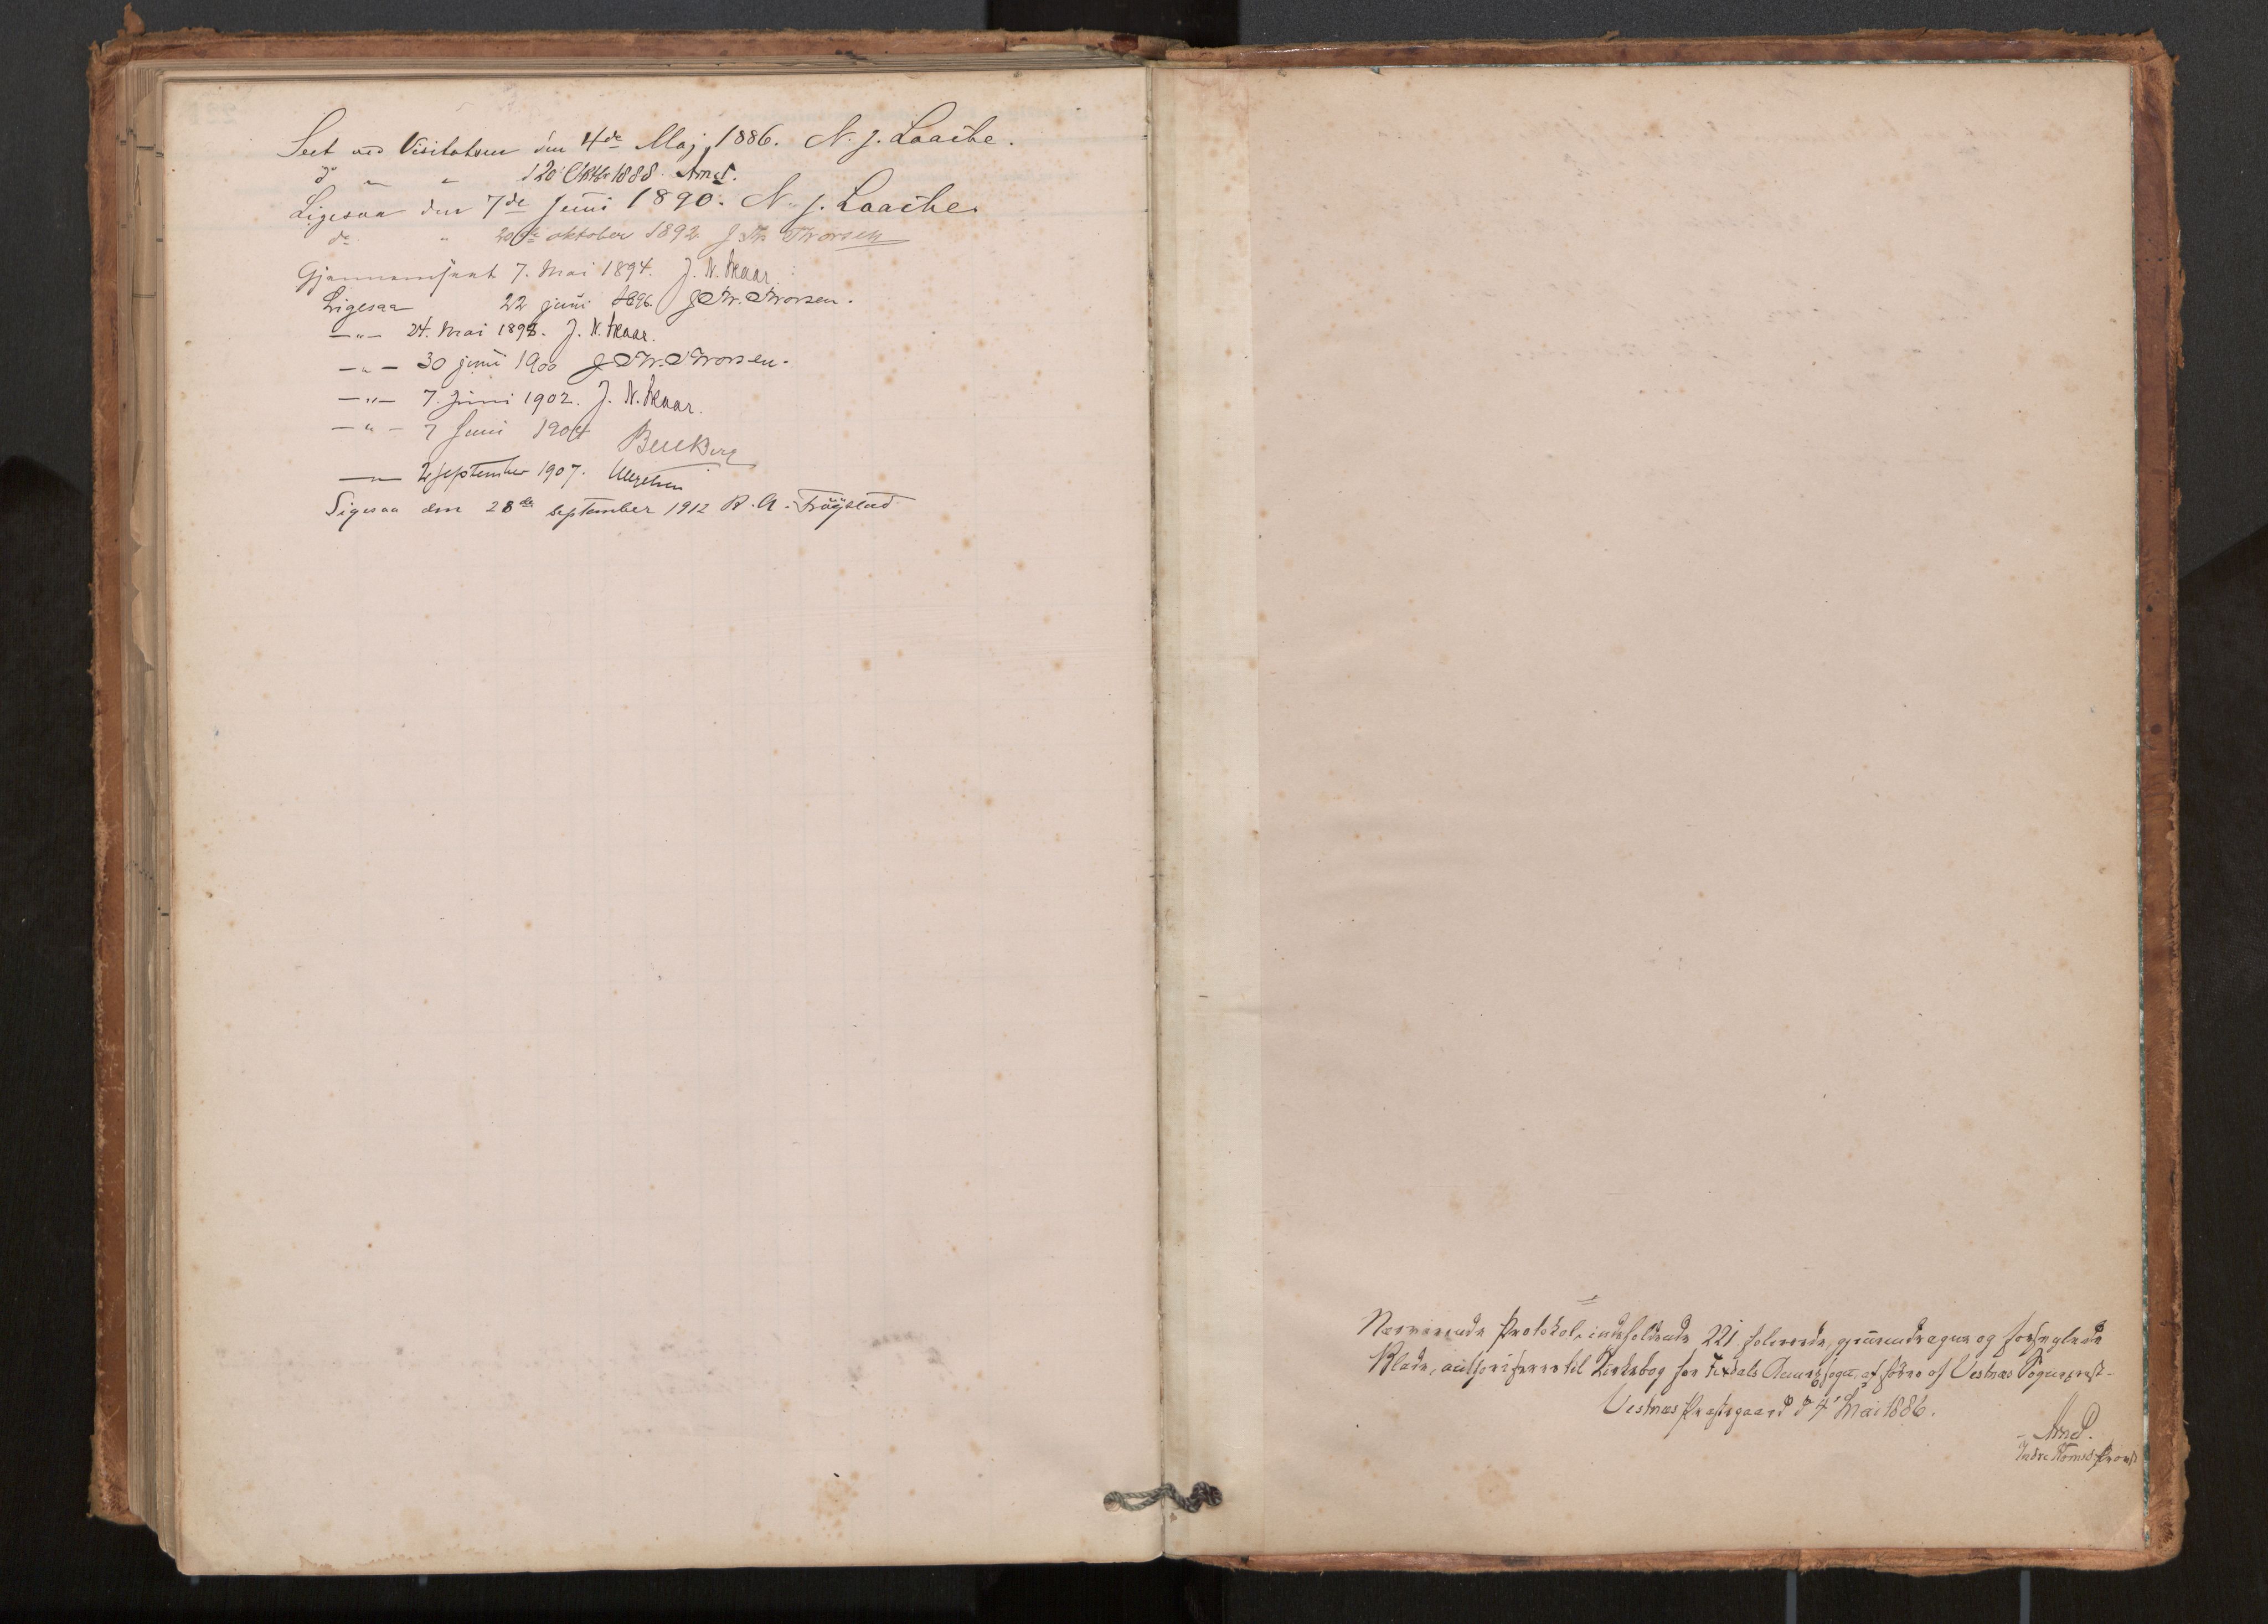 Seet ved Visitatsen den 4de Maj 1886. N. J. Laache.
do " " d 20' Oktbr 1888. Arnet.
Ligesaa den 7de Juni 1890. N. J. Laache
do " 20de oktober 1892. J Th Thorsen
Gjennemseet 7. Mai 1894. J. N. Skaar.
Ligesaa 22 juni 1896. J Th. Thorsen.
— " — 24. Mai 1898. J. N. Skaar.
— " — 30 juni 1900 J Th. Thorsen.
— " — 7. Juni 1902. J. N. Skaar.
— " — 7 Juni 1904
— " — 2 September 1907.
Ligesaa den 28de september 1912 K. A. Fröystad
Nærværende Protokol, indeholdende 221 folierede, gjennemdragne og forseglede
Blade, authoriseres til Kirkebog for Fixdals Annexsogn, at føres af Vestnæs Sognepræst.
Vestnæs Præstegaard d 4' Mai 1886.
Arnet.
Indre Romsd. Provsti